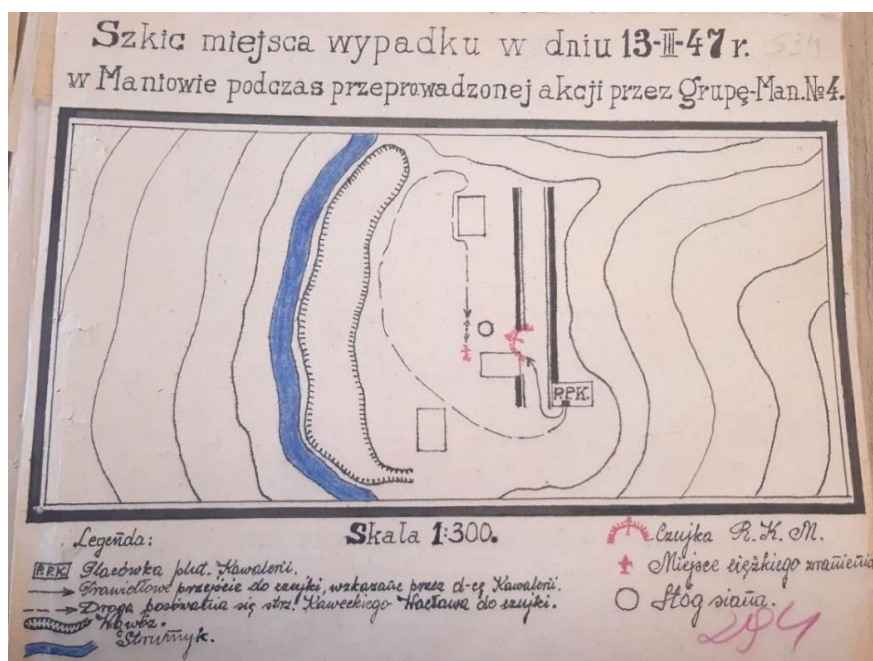 Szkic miejsca wypadku w dniu 13-III-47 r.
534
w Maniowie podczas przeprowadzonej akcji przez grupę-Man.№4.
P.P.K.
Skala 1:300.
Legenda:
P.P.K. Placówka plut. Kawalerii.
Prawidłowe przejście do czujki, wskazane przez d-cę Kawalerii.
Droga posówania się strz. Kaweckiego Wacława do czujki.
Wąwóz.
Strumyk.
Czujka R.K.M.
Miejsce ciężkiego zranienia
Stóg siana.
294